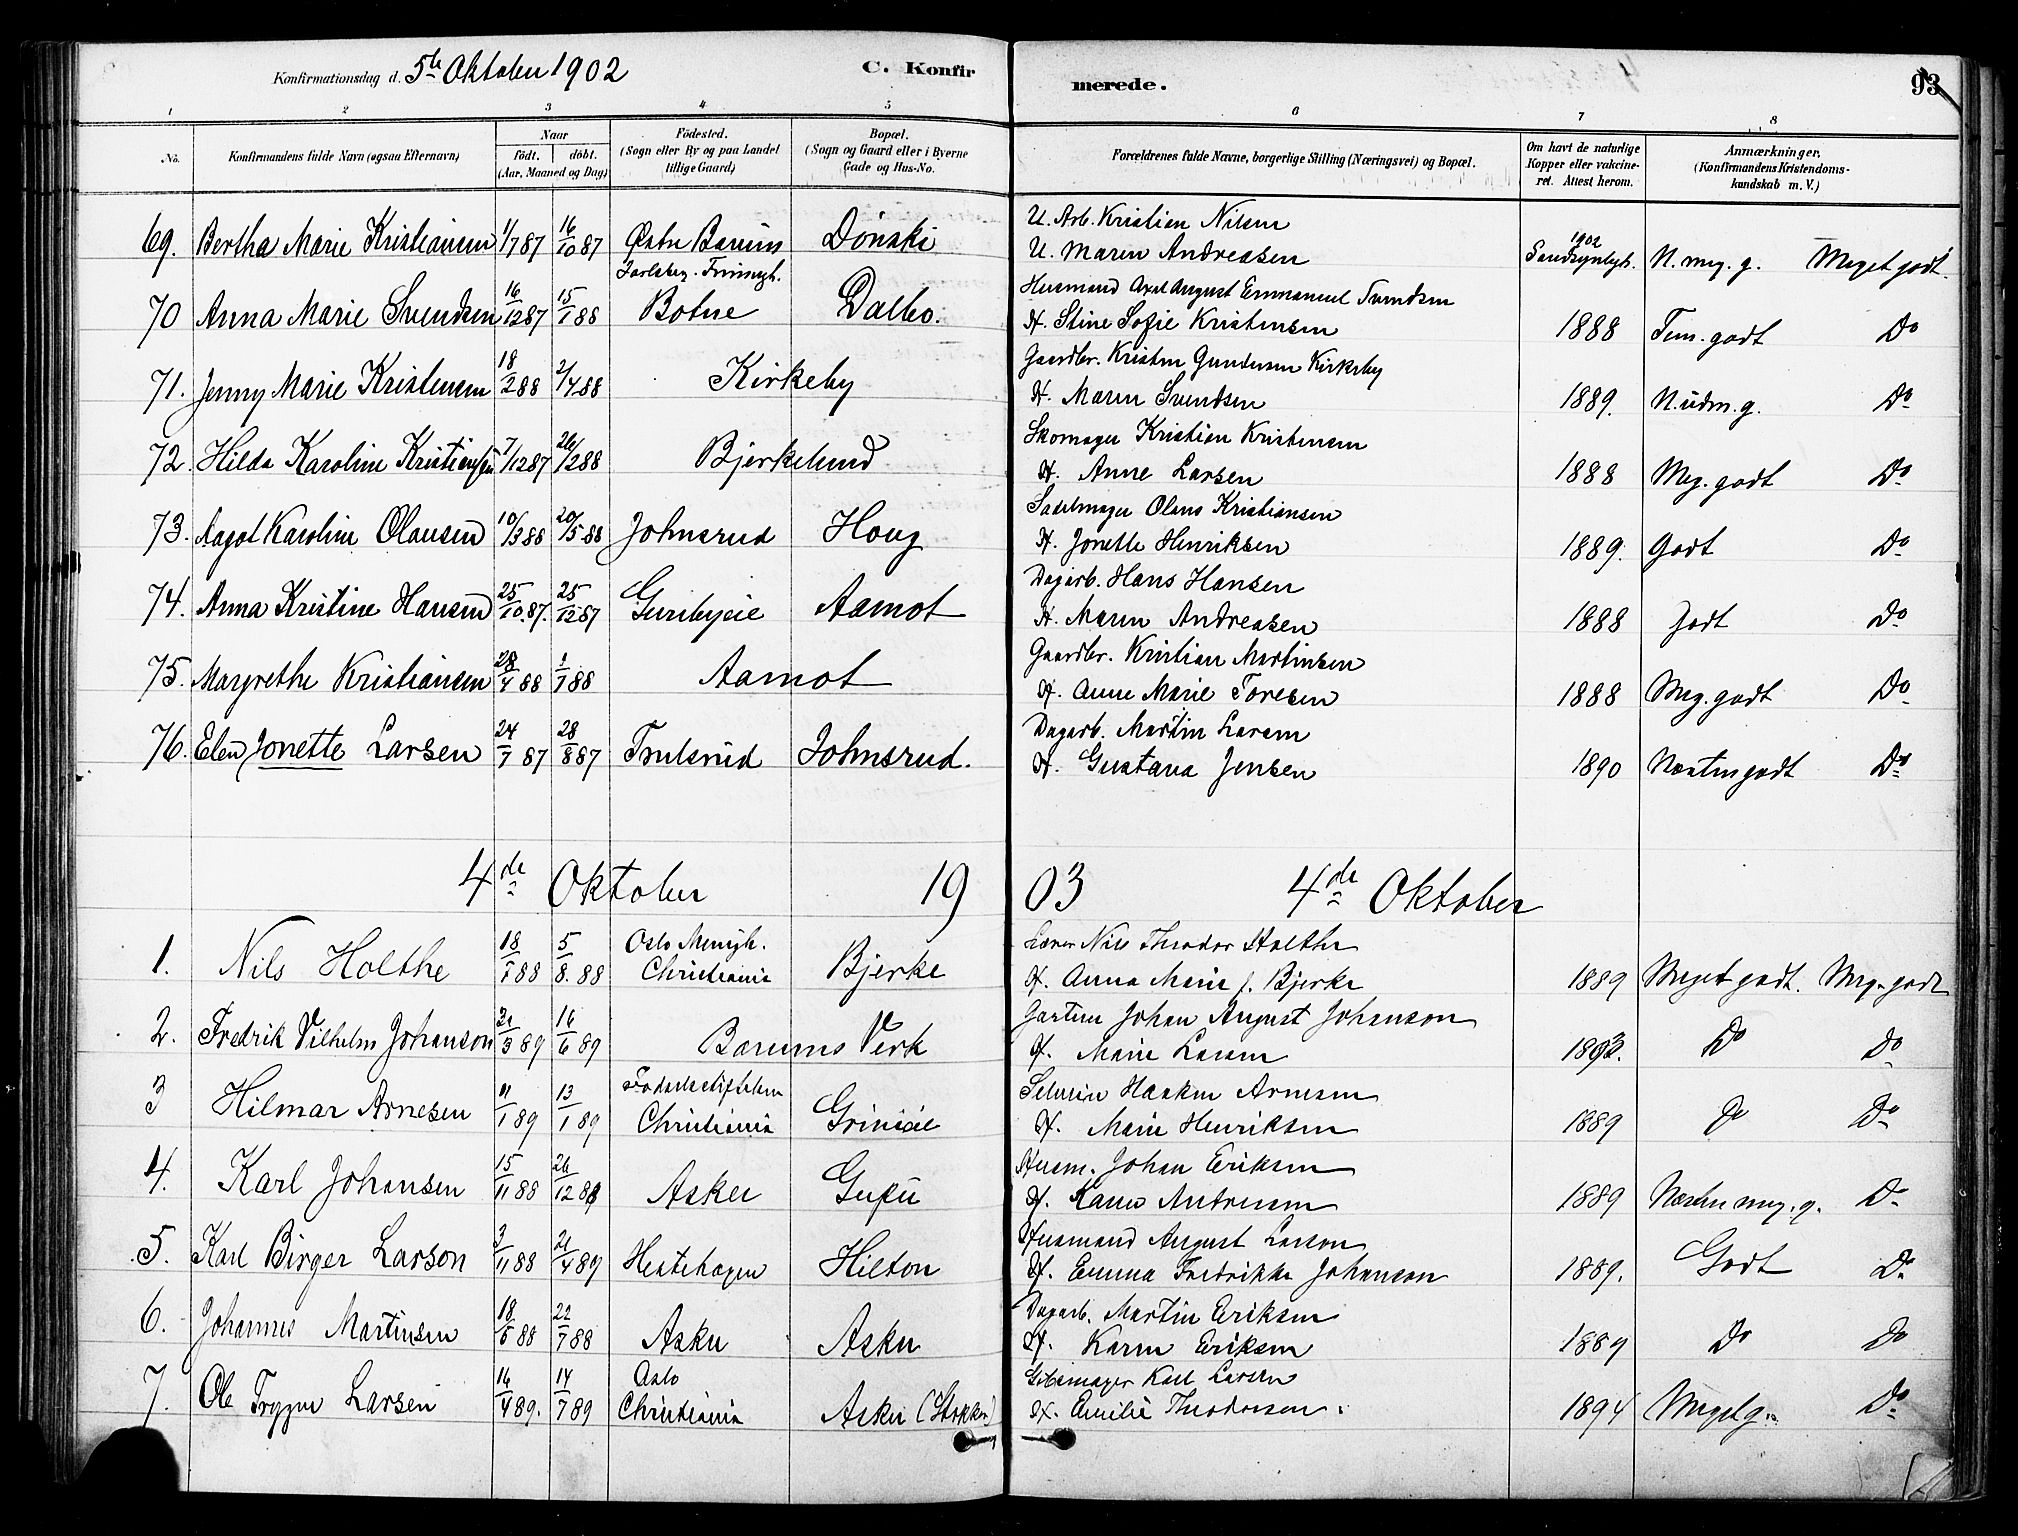 Konfirmationsdag d. 5te Oktober 1902
C. Konfirmerede.
93
1 2 3 4 5 6 7 8
No. Konfirmandens fulde Navn (ogsaa Efternavn) Naar født. døbt. (Aar, Maaned og Dag) Fødested. (Sogn eller By og paa Landet tillige Gaard) Bopæl. (Sogn og Gaard eller i Byerne Gade og Hus-No. Forældrenes fulde Navne, borgerlige Stilling (Næringsvei) og Bopæl. Om havt de naturlige Kopper eller vakcineret. Attest herom. Anmærkninger. (Konfirmandens Kristendomskundskab m. V.)
U. Arb. Kristian Nilsen
69. Bertha Marie Kristiansen 1/7 87 16/10 87 Østre Bærum Dønski U. Maren Andreasen 1902 N. meg. g. Meget godt.
Jarlsberg. Husmand Axel August Emmanuel Svendsen
70 Anna Marie Svendsen 16/12 87 15/1 88 Botne Dalbo. H. Stine Sofie Kristensen 1888 Tem. godt Do
Gaardbr. Kristen Gundersen Kirkeby
71. Jenny Marie Kristensen 18/2 88 2/4 88 Kirkeby H. Maren Svendsen 1889. N. udm. g. Do
Skomager Kristian Kristensen
72. Hilda Karoline Kristiansen 7/12 87 26/2 88 Bjerkelund H. Anne Larsen 1888 Meg. godt Do
Sadelmager Olaus Kristiansen
73. Aagot Karoline Olausen 10/3 88 20/5 88 Johnsrud Houg H. Jonette Henriksen 1889. Godt Do
Dagarb. Hans Hansen
74. Anna Kristine Hansen 25/10 87. 25/12 87 Guribyeie Aamot H. Maren Andreasen 1888 Godt Do
Gaardbr. Kristian Martinsen
75. Margrethe Kristiansen 28/4 88 1/7 88 Aamot H. Anne Marie Toresen 1888 Meg. godt Do
Dagarb. Martin Larsen
76. Elen Jonette Larsen 24/7 87 28/8 87 Trulsrud Johnsrud. H. Gustava Jensen 1890 Næsten godt Do
4de Oktober 1903 4de Oktober
Oslo Menigh. Lærer Nils Theodor Holthe
1. Nils Holthe 18/7 88 5/8. 88 Christiania Bjerke H. Anna Marie f. Bjerke 1889 Meget godt. Meg. godt
Gartner Johan August Johanson
2. Fredrik Vilhelm Johanson 21/3 89 16/6 89 Bærums Verk H. Marie Larsen Do Do
Fødselsstiftelsen Haaken Arnesen
3 Hilmar Arnesen 11/1 89 13/1 89 Christiania H. Marie Henriksen 1889 Do Do
Husm. Johan Eriksen
4. Karl Johansen 15/11 88 26/12 88 Asker H. Karen Andresen 1889 Næsten meg. g. Do
Husmand August Larson
5. Karl Birger Larson 3/11 88 21/4 89 Hestehagen Hilton H. Emma Fredrikke Johanson 1889. Godt Do
Dagarb. Martin Eriksen
6. Johannes Martinsen 18/5 88 22/7 88 Asker Asker H. Karen Eriksen 1889 Do Do
Oslo Karl Larsen
7. Ole Trygve Larsen 16/4 89. 14/7 89 Christiania Asker (Stokker) H. Emilie Theodorsen. 1894 Meget g. Do